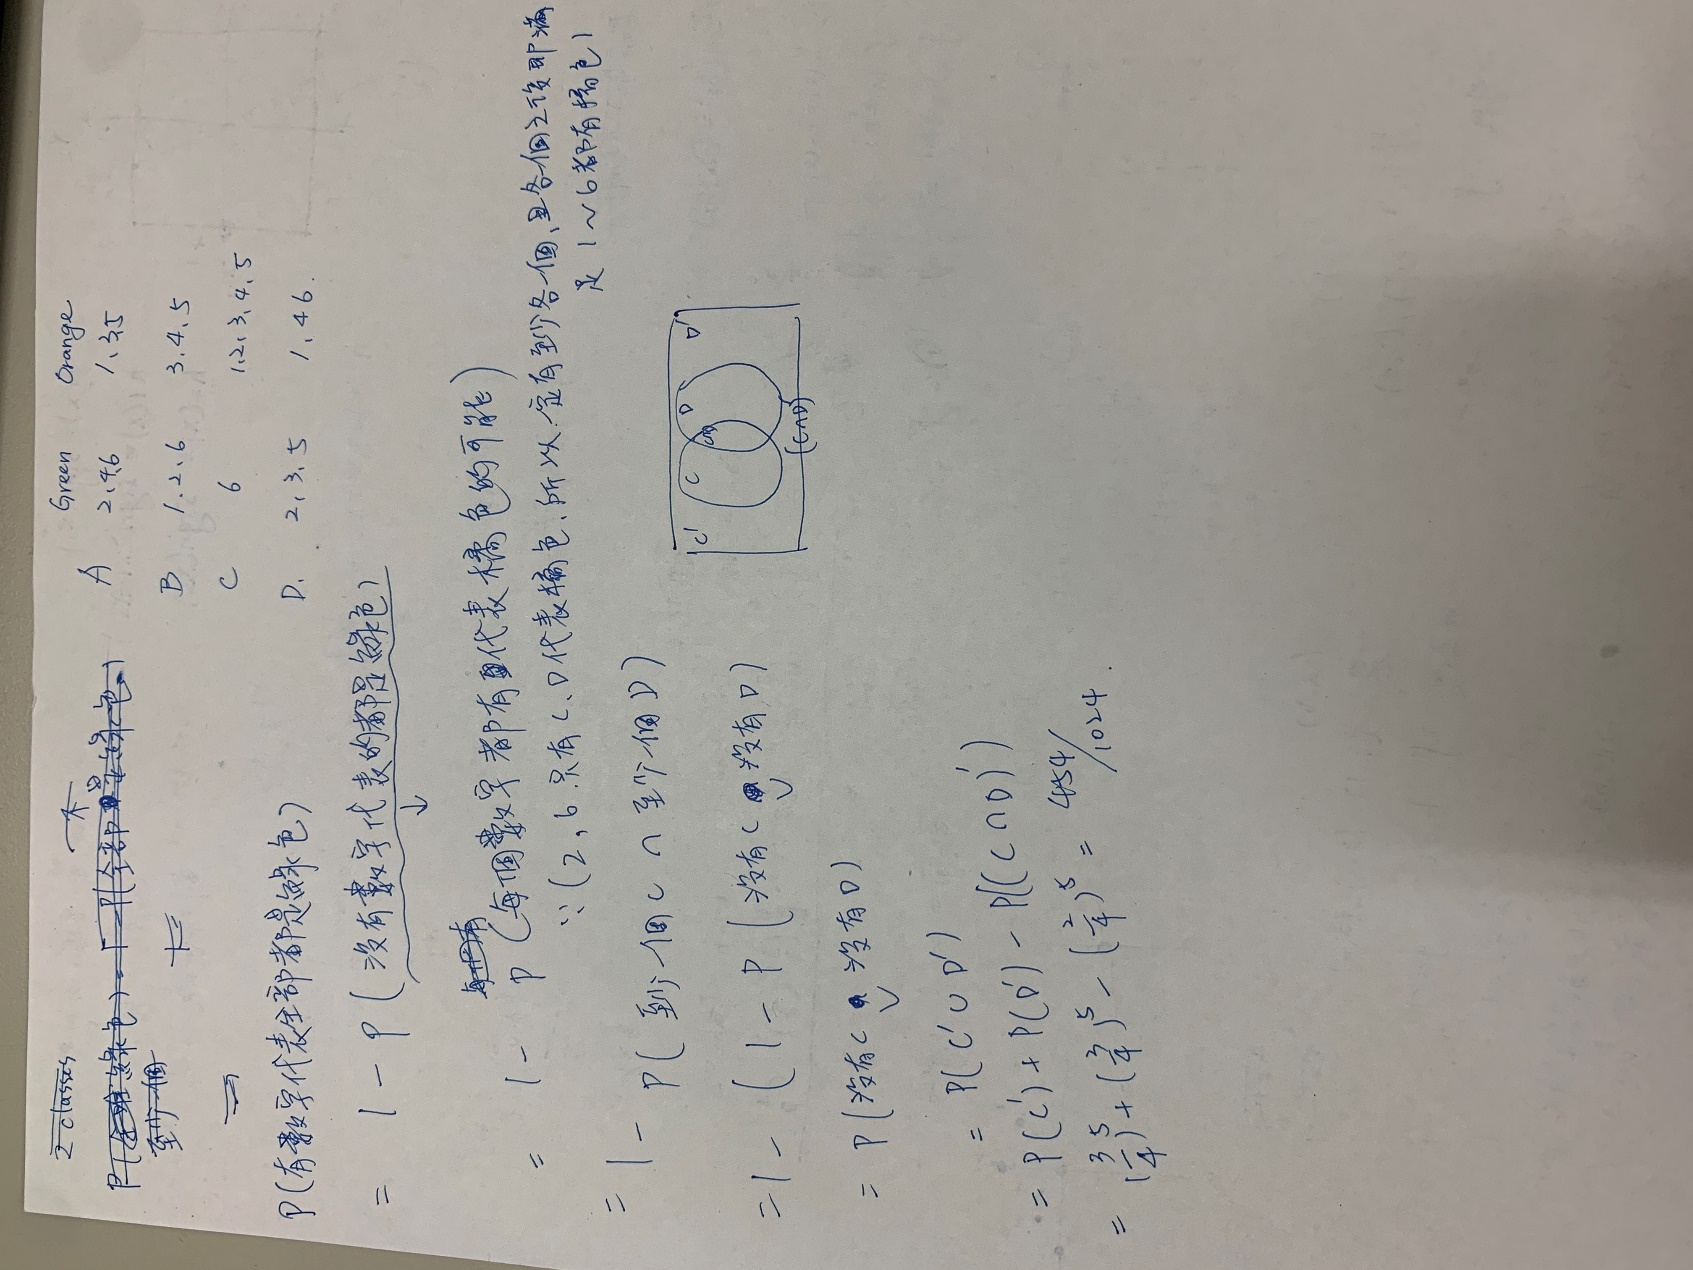 2 classes
Green Orange
A 2.4.6 1.3.5
B 1.2.6 3.4.5
C 6 1.2.3.4.5
D. 2.3.5 1.4.6.
P(有數字代表全部都是綠色)
= 1 - P(沒有數字代表的都是綠色)
↓
= 1 - P(每個數字都有代表橘色的可能)
∵(2,6.只有C.D代表橘色.所以一定有至少各一個,且各一個之後即滿
足1~6都有橘色)
= 1 - P(至少一個C ∩ 至少一個D)
= 1 - (1 - P(沒有C ∪ 沒有D)
= P(沒有C ∪ 沒有D)
= P(C' ∪ D')
= P(C') + P(D') - P((C∩D)')
= (3/4)^5 + (3/4)^5 - (2/4)^5 = 454/1024.
C' C C∩D D D'
(C∩D)